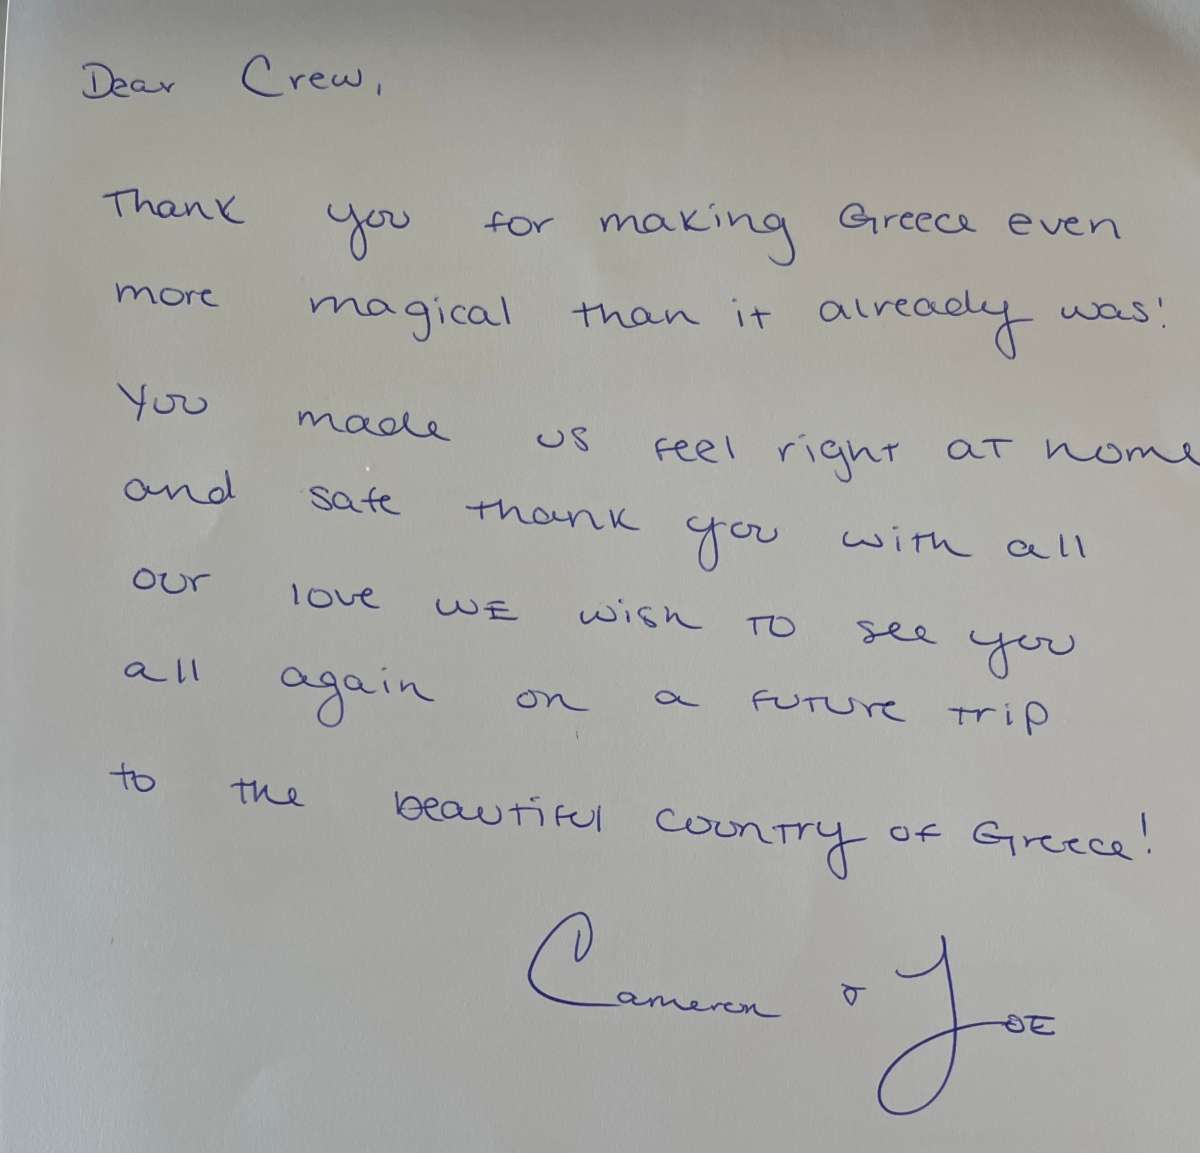 Dear Crew,
Thank you for making Greece even
more magical than it already was!
You made us feel right at home
and safe thank you with all
our love we wish to see you
all again on a future trip
to the beautiful country of Greece!
Cameron & Joe